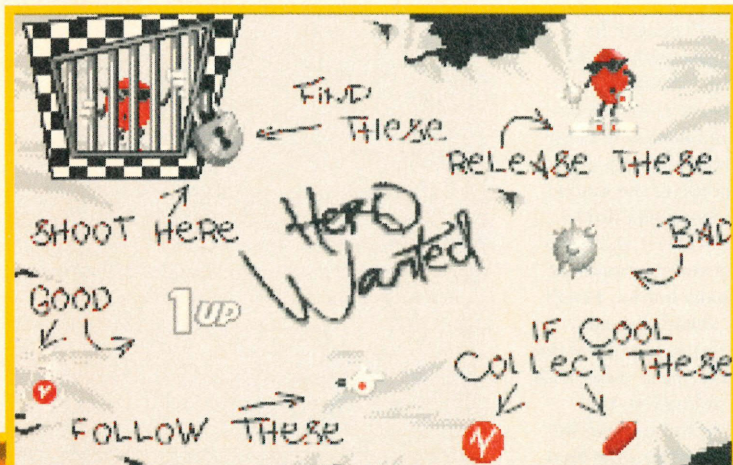 FIND
THESE
RELEASE THESE
SHOOT HERE
HERO
WANTED
BAD
GOOD
1UP
IF COOL
COLLECT THESE
FOLLOW THESE